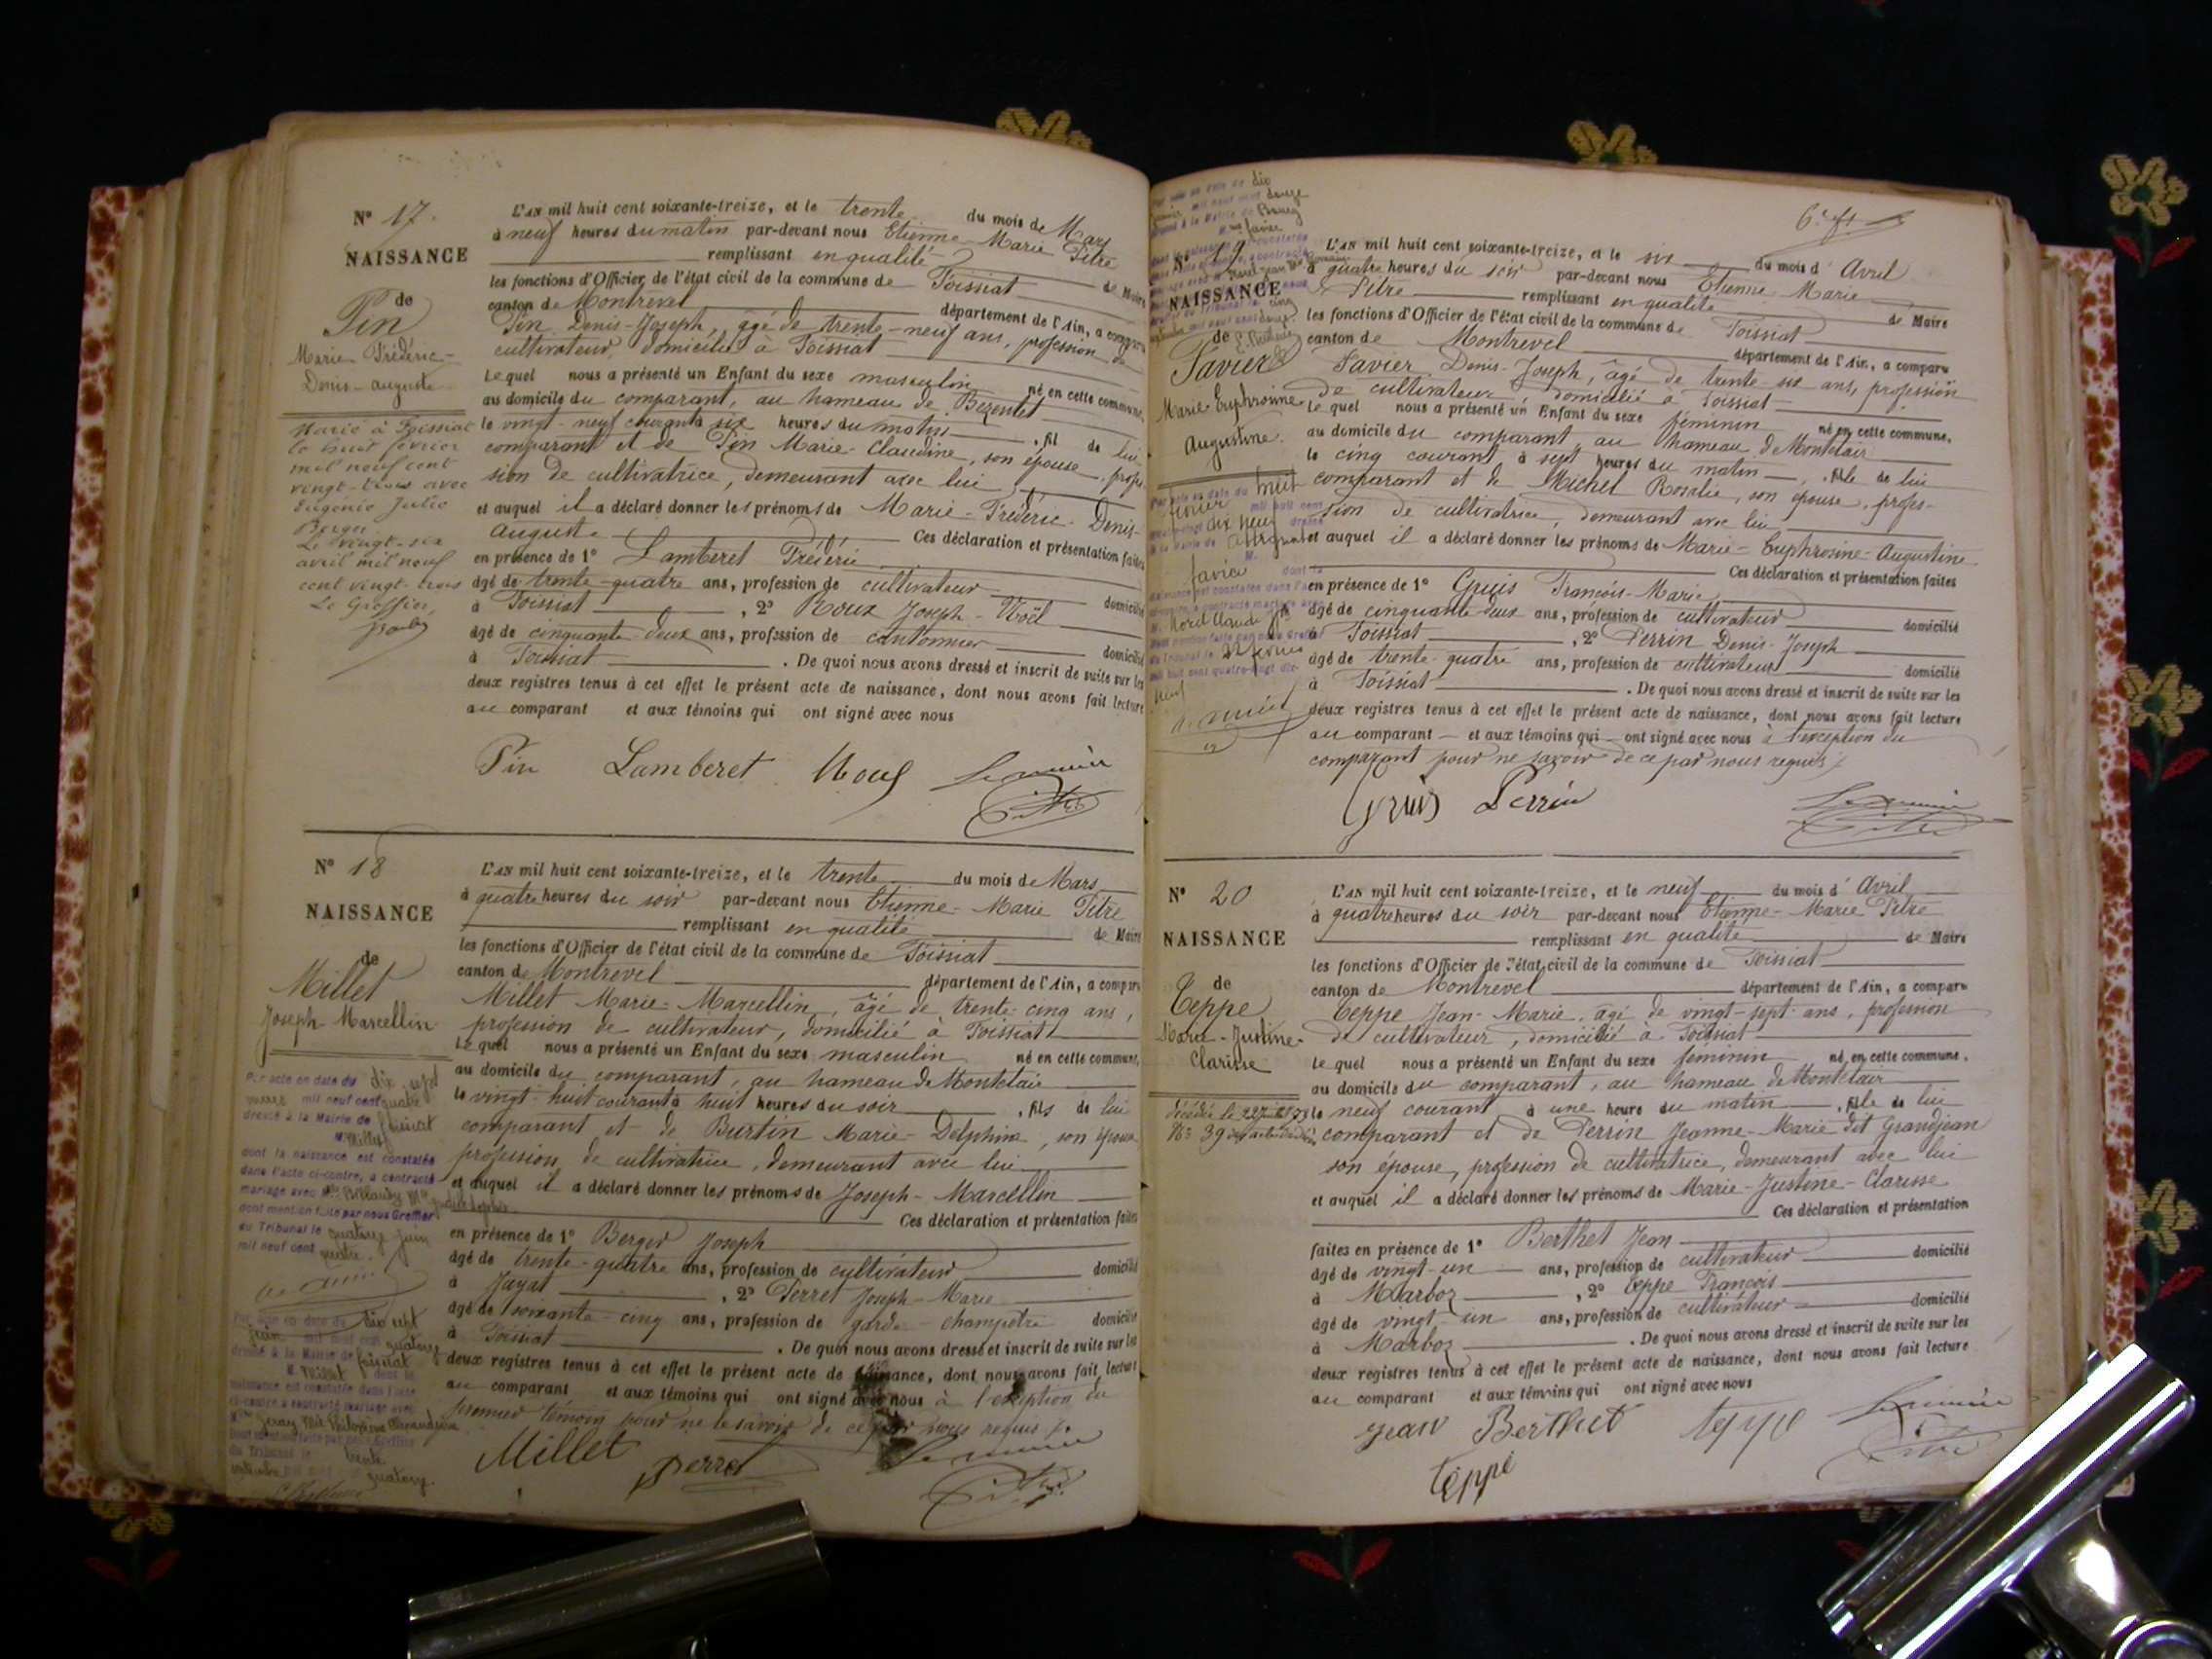 N° 17.
NAISSANCE
de
Pin
Marie-Frédéric-
Denis-Auguste
Marié à Foissiat
le huit février
mil neuf cent
vingt-trois avec
Eugénie Julie
Berger
Le vingt-six
avril mil neuf
cent vingt-trois
Le Greffier,
L'AN mil huit cent soixante-treize, et le trente du mois de Mars
à neuf heures du matin par-devant nous Etienne-Marie Pitre
remplissant en qualité de Maire
les fonctions d'Officier de l'état civil de la commune de Foissiat
canton de Montrevel département de l'Ain, a comparu
Pin Denis-Joseph, âgé de trente-neuf ans, profession de
cultivateur, domicilié à Foissiat
Lequel nous a présenté un Enfant du sexe masculin né en cette commune,
au domicile du comparant, au hameau de Bezentet
le vingt-neuf courant à six heures du matin, fil de lui
comparant et de Pin Marie-Claudine, son épouse, profes-
sion de cultivatrice, demeurant avec lui
et auquel il a déclaré donner les prénoms de Marie-Frédéric-Denis-
Auguste Ces déclaration et présentation faites
en présence de 1° Lamberet Frédéric
âgé de trente-quatre ans, profession de cultivateur domicilié
à Foissiat, 2° Roux Joseph-Noël
âgé de cinquante-deux ans, profession de cantonnier domicilié
à Foissiat. De quoi nous avons dressé et inscrit de suite sur les
deux registres tenus à cet effet le présent acte de naissance, dont nous avons fait lecture
au comparant et aux témoins qui ont signé avec nous
Pin Lamberet Roux Le maire
Pitre
N° 18
NAISSANCE
de
Millet
Joseph-Marcellin
Par acte en date du dix-sept
mil neuf cent quatre
dressé à la Mairie de Foissiat
M. Millet
dont la naissance est constatée
dans l'acte ci-contre, a contracté
mariage avec
dont mention faite par nous Greffier
du Tribunal le quatorze juin
mil neuf cent quatre.
Par acte en date du dix sept
juin mil neuf cent quatorze
dressé à la Mairie de Foissiat
M. Millet dont la
naissance est constatée dans l'acte
ci-contre a contracté mariage avec
dont mention faite par nous Greffier
du Tribunal le trente
quatorze.
L'AN mil huit cent soixante-treize, et le trente du mois de Mars
à quatre heures du soir par-devant nous Etienne-Marie Pitre
remplissant en qualité de Maire
les fonctions d'Officier de l'état civil de la commune de Foissiat
canton de Montrevel département de l'Ain, a comparu
Millet Marie-Marcellin, âgé de trente-cinq ans,
profession de cultivateur, domicilié à Foissiat
Lequel nous a présenté un Enfant du sexe masculin né en cette commune,
au domicile du comparant, au hameau de Montclair
le vingt-huit courant à huit heures du soir, fils de lui
comparant et de Burtin Marie-Delphine, son épouse
profession de cultivatrice, demeurant avec lui
et auquel il a déclaré donner les prénoms de Joseph-Marcellin
Ces déclaration et présentation faites
en présence de 1° Berger Joseph
âgé de trente-quatre ans, profession de cultivateur domicilié
à Jayat, 2° Perret Joseph-Marie
âgé de soixante-cinq ans, profession de garde-champêtre domicilié
à Foissiat. De quoi nous avons dressé et inscrit de suite sur les
deux registres tenus à cet effet le présent acte de naissance, dont nous avons fait lecture
au comparant et aux témoins qui ont signé avec nous à l'exception du
premier témoin pour ne le savoir de ce par nous requis.
Millet Perret Le maire
Pitre
6e ft
dix
mil neuf cent douze
à la Mairie de Bourg
NAISSANCE
de
Favier
Marie-Euphrosine
Augustine.
Par acte en date du huit
février mil huit cent
quatre-vingt dix neuf dressé
à la Mairie de Attignat
favier dont la
naissance est constatée dans l'acte
ci-contre, a contracté mariage avec
M. Morel Claude
dont mention faite par nous Greffier
du Tribunal le 22 février
mil huit cent quatre-vingt dix-
neuf
L'AN mil huit cent soixante-treize, et le six du mois d'Avril
à quatre heures du soir par-devant nous Etienne-Marie
Pitre remplissant en qualité de Maire
les fonctions d'Officier de l'état civil de la commune de Foissiat
canton de Montrevel département de l'Ain, a comparu
Favier Denis-Joseph, âgé de trente-six ans, profession
de cultivateur, domicilié à Foissiat
Lequel nous a présenté un Enfant du sexe féminin né en cette commune,
au domicile du comparant, au hameau de Montclair
le cinq courant à sept heures du matin, fille de lui
comparant et de Michel Rosalie, son épouse, profes-
sion de cultivatrice, demeurant avec lui
et auquel il a déclaré donner les prénoms de Marie-Euphrosine-Augustine
Ces déclaration et présentation faites
en présence de 1° Gruis François-Marie
âgé de cinquante-deux ans, profession de cultivateur domicilié
à Foissiat, 2° Perrin Denis-Joseph
âgé de trente-quatre ans, profession de cultivateur domicilié
à Foissiat. De quoi nous avons dressé et inscrit de suite sur les
deux registres tenus à cet effet le présent acte de naissance, dont nous avons fait lecture
au comparant et aux témoins qui ont signé avec nous à l'exception du
comparant pour ne savoir de ce par nous requis
Gruis Perrin Le maire
Pitre
N° 20
NAISSANCE
de
Teppe
Marie-Justine-
Clarisse
L'AN mil huit cent soixante-treize, et le neuf du mois d'Avril
à quatre heures du soir par-devant nous Etienne-Marie Pitre
remplissant en qualité de Maire
les fonctions d'Officier de l'état civil de la commune de Foissiat
canton de Montrevel département de l'Ain, a comparu
Teppe Jean-Marie, âgé de vingt-sept ans, profession
de cultivateur, domicilié à Foissiat
Lequel nous a présenté un Enfant du sexe féminin né en cette commune,
au domicile du comparant, au hameau de Montclair
le neuf courant, à une heure du matin, fille de lui
comparant et de Perrin Jeanne-Marie dit Grandjean
son épouse, profession de cultivatrice, demeurant avec lui
et auquel il a déclaré donner les prénoms de Marie-Justine-Clarisse
Ces déclaration et présentation
faites en présence de 1° Berthet Jean
âgé de vingt-un ans, profession de cultivateur domicilié
à Marboz, 2° Teppe François
âgé de vingt-un ans, profession de cultivateur domicilié
à Marboz. De quoi nous avons dressé et inscrit de suite sur les
deux registres tenus à cet effet le présent acte de naissance, dont nous avons fait lecture
au comparant et aux témoins qui ont signé avec nous
jean Berthet teppe Le maire
Teppe Pitre